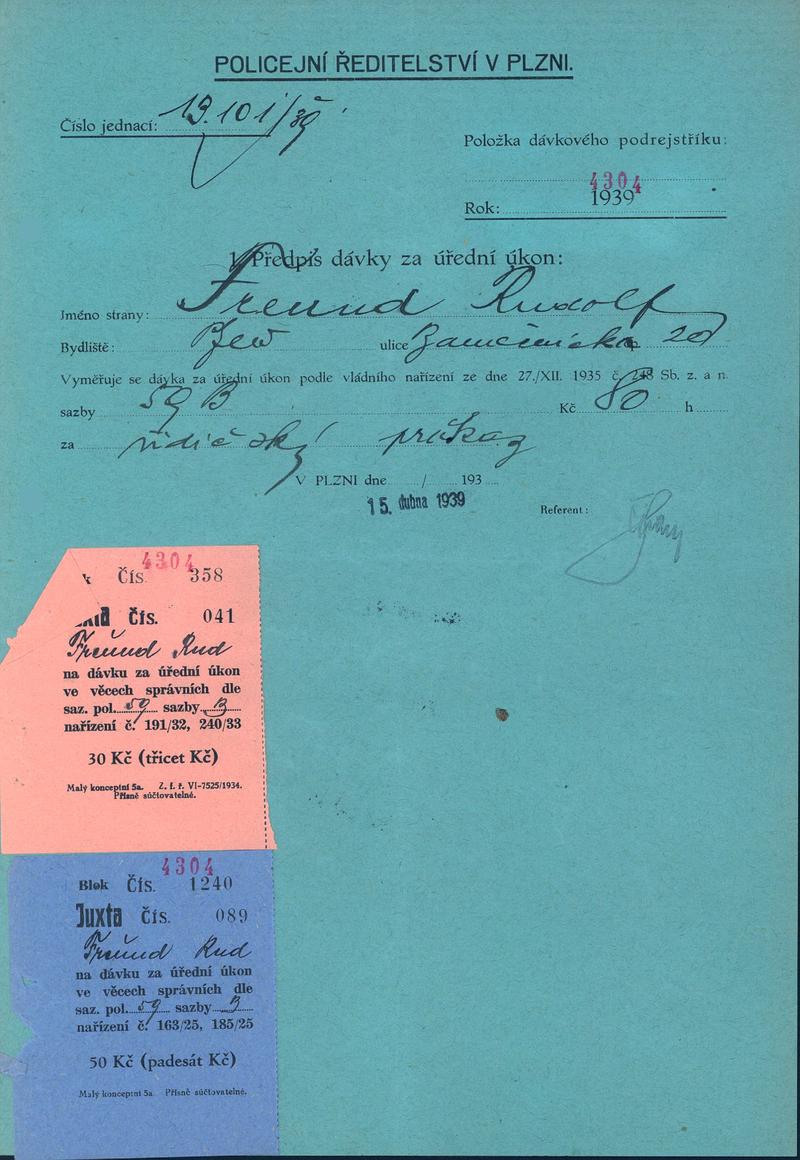 POLICEJNÍ ŘEDITELSTVÍ V PLZNI.
Číslo jednací: 13.101/39
Položka dávkového podrejstříku:
4304
Rok: 1939
1. Předpis dávky za úřední úkon:
Jméno strany: Freund Rudolf
Bydliště: ulice 20
Vyměřuje se dávka za úřední úkon podle vládního nařízení ze dne 27./XII. 1935 č. 248 Sb. z. a n.
sazby 59 B Kč 80 h
za řidičský průkaz
V PLZNI dne / 193
15. dubna 1939
Referent:
4304
k Čís. 358
Čís. 041
Freund Rud
na dávku za úřední úkon
ve věcech správních dle
saz. pol. 59 sazby B
nařízení č. 191/32, 240/33
30 Kč (třicet Kč)
Malý konceptní 5a. Z. f. ř. VI-7525/1934.
Přísně súčtovatelné.
4304
Blok Čís. 1240
Juxta Čís. 089
Freund Rud
na dávku za úřední úkon
ve věcech správních dle
saz. pol. 59 sazby B
nařízení č. 163/25, 185/25
50 Kč (padesát Kč)
Malý konceptní 5a. Přísně súčtovatelné.